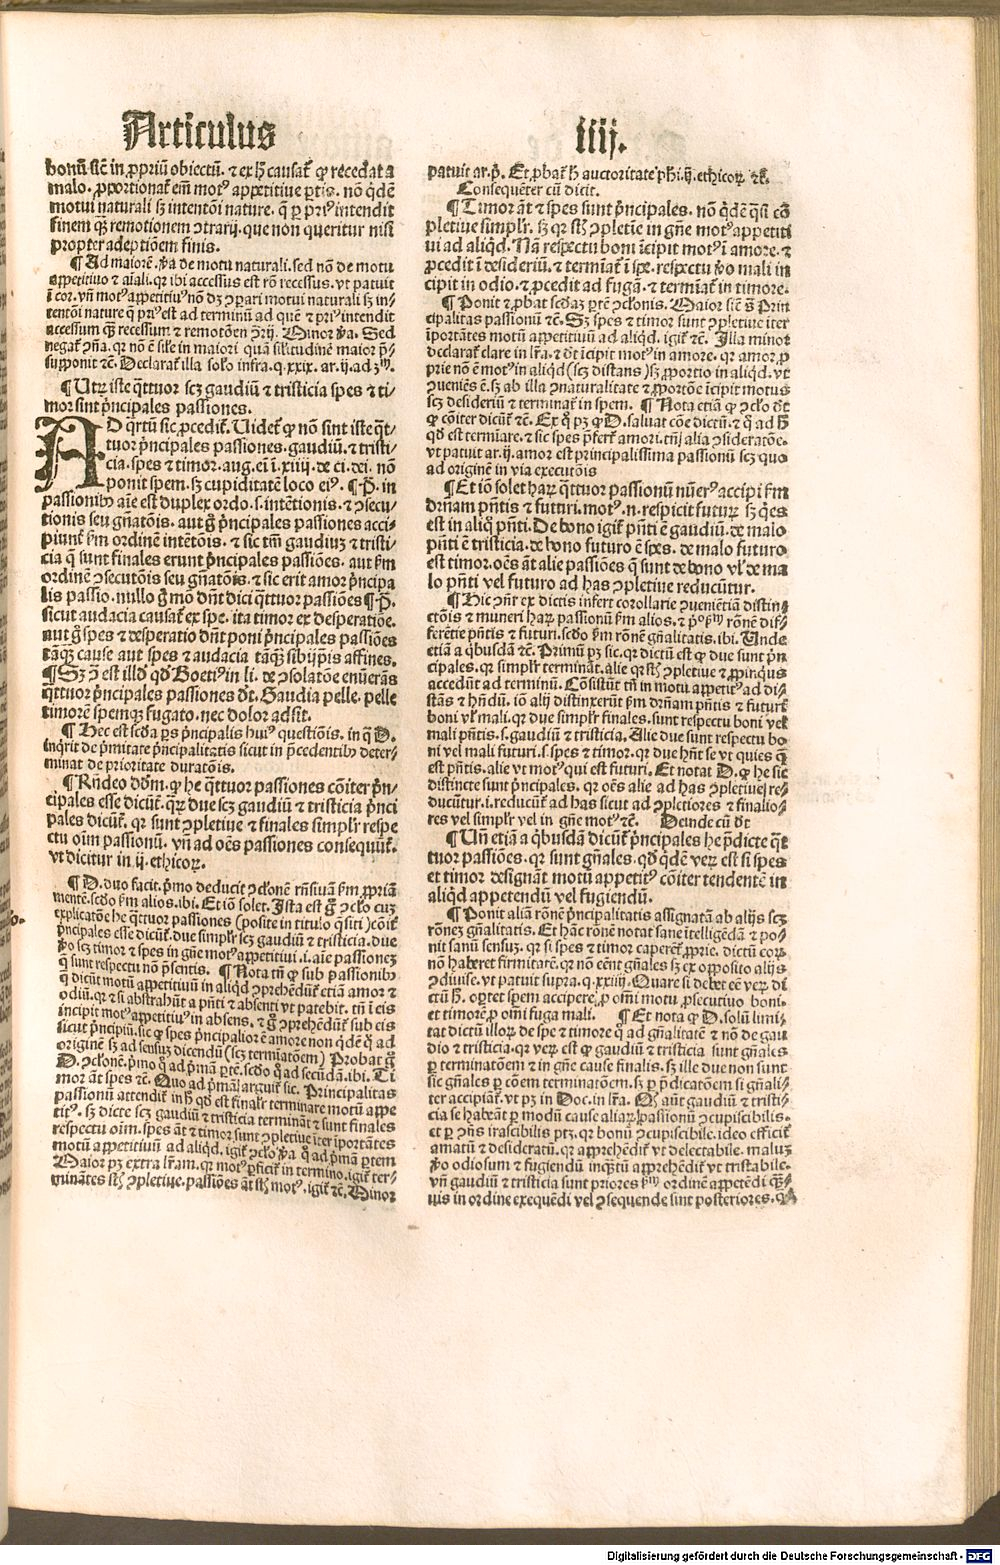 Articulus
iiij.
bonũ sic̃ in ꝓpriũ obiectũ. ⁊ ex hͦ causat̃ ꝙ recedat̃ a
malo. ꝓportionat̃ em̃ motꝰ appetitiue ꝑtis. nõ q̃dẽ
motui naturali sꝫ intentõi nature. q̃ ꝑ pͥrꝰ intendit
finem qꝫ remotionem ꝯtrarij. que non queritur nisi
propter adeptiõem finis.
¶ Ad maiorẽ. p̃a de motu naturali. sed nõ de motu
appetitiuo ⁊ aĩali. qꝛ ibi accessus est rõ recessus. vt patuit
ĩ cor. vñ motꝰ appetitiuꝰ nõ dꝫ ꝯpari motui naturali sꝫ in⸗
tentõi nature q̃ priꝰ est ad terminũ ad quẽ ⁊ priꝰ intendit
accessum qꝫ recessum ⁊ remotõem ꝯ̃rij. Minor p̃a. Sed
negat̃ ꝯ̃na. qꝛ nõ ẽ sil̃e in maiori quã sil̃itudinẽ maior p̃⸗
supponit ⁊c̃. Declarat̃ illa solo infra. q. xxix. ar. ij. ad ꝫᵐ.
¶ Utꝝ iste q̃ttuor scꝫ gaudiũ ⁊ tristicia spes ⁊ ti⸗
mor sint p̃ncipales passiones.
AD q̃rtũ sic ꝓcedit̃. Uidet̃ ꝙ nõ sint iste q̃t⸗
tuor p̃ncipales passiones. gaudiũ. ⁊ tristi⸗
cia. spes ⁊ timor. aug. ei ĩ. xiiij. de ci. dei. nõ
ponit spem. sꝫ cupiditatẽ loco eiꝰ. ¶ P̃. in
passionibꝰ aĩe est duplex ordo. s. intẽtionis. ⁊ ꝯsecu⸗
tionis seu gñatõis. aut g̃ p̃ncipales passiones acci⸗
piunt̃ ẜm ordinẽ intẽtõis. ⁊ sic tm̃ gaudiuꝫ ⁊ tristi⸗
cia q̃ sunt finales erunt p̃ncipales passiões. aut ẜm
ordinẽ ꝯsecutõis seu gñatõis. ⁊ sic erit amor p̃ncipa
lis passio. nullo g̃ mõ dñt dici q̃ttuor passiões ¶ P̃.
sicut audacia causat̃ ex spe. ita timor ex desperatiõe.
aut g̃ spes ⁊ desperatio dñt poni p̃ncipales passiões
tãqꝫ cause aut spes ⁊ audacia tãqꝫ sibijpĩs affines.
¶ Sꝫ ꝯ̃ est illđ qđ Boetiꝰ in li. de ꝯsolatõe enũerãs
q̃ttuor p̃ncipales passiones dc̃. Gaudia pelle. pelle
timorẽ spemqꝫ fugato. nec dolor adsit.
¶ Hec est scđa ꝑs p̃ncipalis huiꝰ questiõis. in q̃ D.
inq̃rit de p̃mitate p̃ncipalitatis sicut in p̃cedentibꝰ deter⸗
minat de prioritate duratõis.
¶ Rñdeo dd̃m. ꝙ he q̃ttuor passiones cõiter p̃n⸗
cipales esse dicũt̃. q̃ꝝ due scꝫ gaudiũ ⁊ tristicia p̃nci
pales dicũt̃. qꝛ sunt ꝯpletiue ⁊ finales simpl̃r respe
ctu oĩm passionũ. vñ ad oẽs passiones consequũt̃.
vt dicitur in ij. ethicoꝝ.
¶ D. duo facit. p̃mo deducit ꝯclonẽ rñsiuã ẜm ꝓpriã
mentẽ. scđo ẜm alios. ibi. Et iõ solet. Ista est g̃ ꝯclo cuꝫ
explicatõe he q̃ttuor passiones (posite in titulo q̃siti) cõit̃
p̃ncipales esse dicũt̃. due simpl̃r scꝫ gaudiũ ⁊ tristicia. due
ꝟo scꝫ timor ⁊ spes in gñe motꝰ appetitiui. i. aĩe passioneꝫ
q̃ sunt respectu nõ p̃sentis. ¶ Nota tñ ꝙ sub passionibꝰ
q̃ dicũt̃ motũ appetitiuũ in aliqđ ꝯprehẽdũt̃ etiã amor ⁊
odiũ. qꝛ ⁊ si abstrahũt a p̃nti ⁊ absenti vt patebit. tñ ĩ eis
incipit motꝰ appetitiuꝰ in absens. ⁊ g̃ ꝯprehẽdũt̃ sub eis
sicut p̃ncipiũ. sic ꝙ spes p̃ncipalior ẽ amore non q̃dẽ q̃ ad
originẽ sꝫ ad sensuꝫ dicendũ (scꝫ terminatõem) Probat g̃
D. ꝯclonẽ. p̃mo q̃ ad p̃mã ꝑtẽ. scđo q̃ ad secũdã. ibi. Ti
mor ãt spes ⁊c̃. Quo ad p̃mã arguit̃ sic. Principalitas
passionũ attendit̃ in hͦ qđ est final̃r terminare motũ appe
titꝰ. sꝫ dicte scꝫ gaudiũ ⁊ tristicia terminãt ⁊ sunt finales
respectu oĩm. spes ãt ⁊ timor sunt ꝯpletiue iter ĩportãtes
motũ appetitiuũ ad aliqđ. igit̃ ꝯclo p̃a q̃ ad p̃mã ꝑtem
Maior pꝫ extra lr̃am. qꝛ motꝰ ꝑficit̃ in termino. igit̃ ter⸗
minãtes sᵗ ꝯpletiue. passiões ãt sᵗ motꝰ. igit̃ ⁊c̃. Minor
patuit ar. p̃. Et ꝓbat̃ hͦ auctoritate phĩ. ij. ethicoꝝ ⁊c̃.
Consequẽter cũ dicit.
¶ Timor ãt ⁊ spes sunt p̃ncipales. nõ q̃dẽ q̃si cõ
pletiue simpl̃r. sꝫ qꝛ sᵗ ꝯpletiue in gñe motꝰ appetiti
ui ad aliqđ. Nã respectu boni ĩcipit motꝰ ĩ amore. ⁊
ꝓcedit ĩ desideriũ. ⁊ termiat̃ ĩ spe. respectu ꝟo mali in
cipit in odio. ⁊ ꝓcedit ad fugã. ⁊ termiat̃ in timore.
¶ Ponit ⁊ ꝓbat scđaꝫ ꝑtẽ ꝯclonis. Maior sic̃ g̃ Prin
cipalitas passionũ ⁊c̃. Sꝫ spes ⁊ timor sunt ꝯpletiue iter
ĩportãtes motũ appetitiuũ ad aliqđ. igit̃ ⁊c̃. Illa minor
declarat̃ clare in lr̃a. ⁊ dc̃ ĩcipit motꝰ in amore. qꝛ amor ꝓ
prie nõ ẽ motꝰ in aliqđ (scꝫ distans) sꝫ ꝓportio in aliqđ. vt
ꝯueniẽs ẽ. sꝫ ab illa ꝯnaturalitate ⁊ ꝓportõe ĩcipit motus
scꝫ desideriũ ⁊ terminat̃ in spem. ¶ Nota etiã ꝙ ꝯclo dc̃
ꝙ cõiter dicũt̃ ⁊c̃. Ex q̃ pꝫ ꝙ D. saluat cõe dictũ. ⁊ q̃ ad hͦ
qđ est termĩare. ⁊ sic spes p̃fert̃ amori. tñ ĩ alia ꝯsideratõe.
vt patuit ar. ij. amor est principalissima passionũ scꝫ quo
ad originẽ in via executõis
¶ Et iõ solet haꝝ q̃ttuor passionũ nũerꝰ accipi ẜm
dr̃iam p̃ntis ⁊ futuri. motꝰ. n. respicit futuꝝ sꝫ q̃es
est in aliq̃ p̃nti. De bono igit̃ p̃nti ẽ gaudiũ. de malo
p̃nti ẽ tristicia. de bono futuro ẽ spes. de malo futuro
est timor. oẽs ãt alie passiões q̃ sunt de bono vl̃ de ma
lo p̃nti vel futuro ad has ꝯpletiue reducũtur.
¶ Hic ꝯñr ex dictis infert corollarie ꝯueniẽtiã distin⸗
ctõis ⁊ numeri haꝝ passionũ ẜm alios. ⁊ p̃ᵒ ẜᵐ rõnẽ dif⸗
ferẽtie p̃ntis ⁊ futuri. scđo ẜm rõnẽ gñalitatis. ibi. Unde
etiã a q̃busdã ⁊c̃. Primũ pꝫ sic. qꝛ dictũ est ꝙ due sunt p̃n
cipales. qꝛ simpl̃r terminãt. alie qꝛ sᵗ ꝯpletiue ⁊ ꝓpinq̃us
accedũt ad terminũ. Cõsistũt tñ in motu appetitꝰ ad di⸗
stãs ⁊ hñdũ. iõ alij distinxerũt ẜm dr̃iam p̃ntis ⁊ futuri
boni vl̃ mali. qꝛ due simpl̃r finales. sunt respectu boni vel
mali p̃ntis. s. gaudiũ ⁊ tristicia. Alie due sunt respectu bo
ni vel mali futuri. s. spes ⁊ timor. qꝛ due hñt se vt quies q̃
est p̃ntis. alie vt motꝰ qui est futuri. Et notat D. ꝙ he sic
distincte sunt p̃ncipales. qꝛ oẽs alie ad has ꝯpletiue re⸗
ducũtur. i. reducũt̃ ad has sicut ad ꝯpletiores ⁊ finalio⸗
res vel simpl̃r vel in gñe motꝰ ⁊c̃. Deinde cũ dc̃
¶ Uñ etiã a q̃busdã dicũt̃ p̃ncipales he p̃dicte q̃t
tuor passiões. qꝛ sunt gñales. qđ q̃dẽ veꝝ est si spes
et timor designãt motũ appetitꝰ cõiter tendentẽ in
aliqđ appetendũ vel fugiendũ.
¶ Ponit aliã rõnẽ p̃ncipalitatis assignatã ab alijs scꝫ
rõneꝫ gñalitatis. Et hãc rõnẽ notat sane ĩtelligẽdã ⁊ po⸗
nit sanũ sensuꝫ. qꝛ si spes ⁊ timor caperẽt̃ ꝓprie. dictũ eoꝝ
nõ haberet firmitatẽ. qꝛ nõ eẽnt gñales sꝫ ex opposito alijs
ꝯdiuise. vt patuit supra. q. xxiij. Quare si debet eẽ veꝝ di
ctũ hͦ. oꝑtet spem accipere ꝓ om̃i motu ꝓsecutiuo boni.
et timorẽ ꝓ om̃i fuga mali. ¶ Et nota ꝙ D. solũ limi⸗
tat dictũ illoꝝ de spe ⁊ timore q̃ ad gñalitatẽ ⁊ nõ de gau
dio ⁊ tristicia. qꝛ veꝝ est ꝙ gaudiũ ⁊ tristicia sunt gñales
ꝑ terminatõem ⁊ in gñe cause finalis. sꝫ ille due non sunt
sic gñales ꝑ cõem terminatõem. sꝫ ꝑ p̃dicatõem si gñali⸗
ter accipiãt̃. vt pꝫ in Doc. in lr̃a. Qꝫ aũt gaudiũ ⁊ tristi⸗
cia se habeãt ꝑ modũ cause aliaꝝ passionũ ꝯcupiscibilis.
et ꝑ ꝯñs irascibilis ptꝫ. qꝛ bonũ ꝯcupiscibile. ideo efficit̃
amatũ ⁊ desideratũ. qꝛ apprehẽdit̃ vt delectabile. maluꝫ
ꝟo odiosum ⁊ fugiendũ inq̃tũ apprehẽdit̃ vt tristabile.
vñ gaudiũ ⁊ tristicia sunt priores ẜᵐ ordinẽ appetẽdi qꝫ⸗
uis in ordine exequẽdi vel ꝯsequende sint posteriores. Q̃
Digitalisierung gefördert durch die Deutsche Forschungsgemeinschaft - DFG